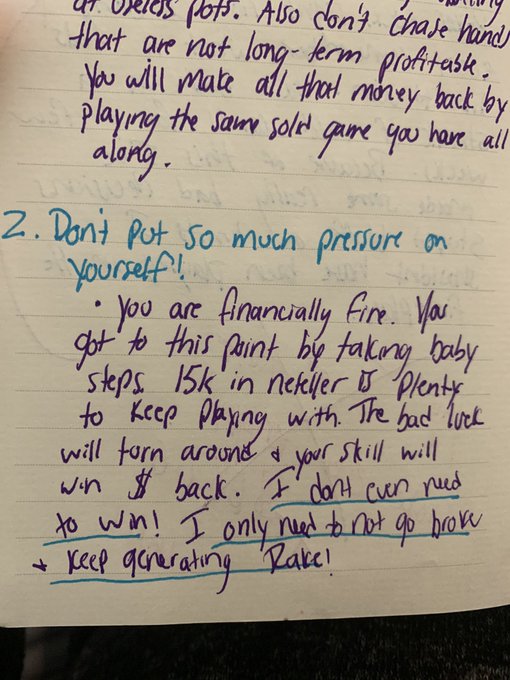 at useless pots. Also don't chase hands
that are not long-term profitable.
You will make all that money back by
playing the same solid game you have all
along.
2. Don't put so much pressure on
yourself!
• You are financially fine. You
got to this point by taking baby
steps. 15k in neteller is plenty
to keep playing with. The bad luck
will turn around & your skill will
win $ back. I dont even need
to win! I only need to not go broke
+ keep generating Rake!